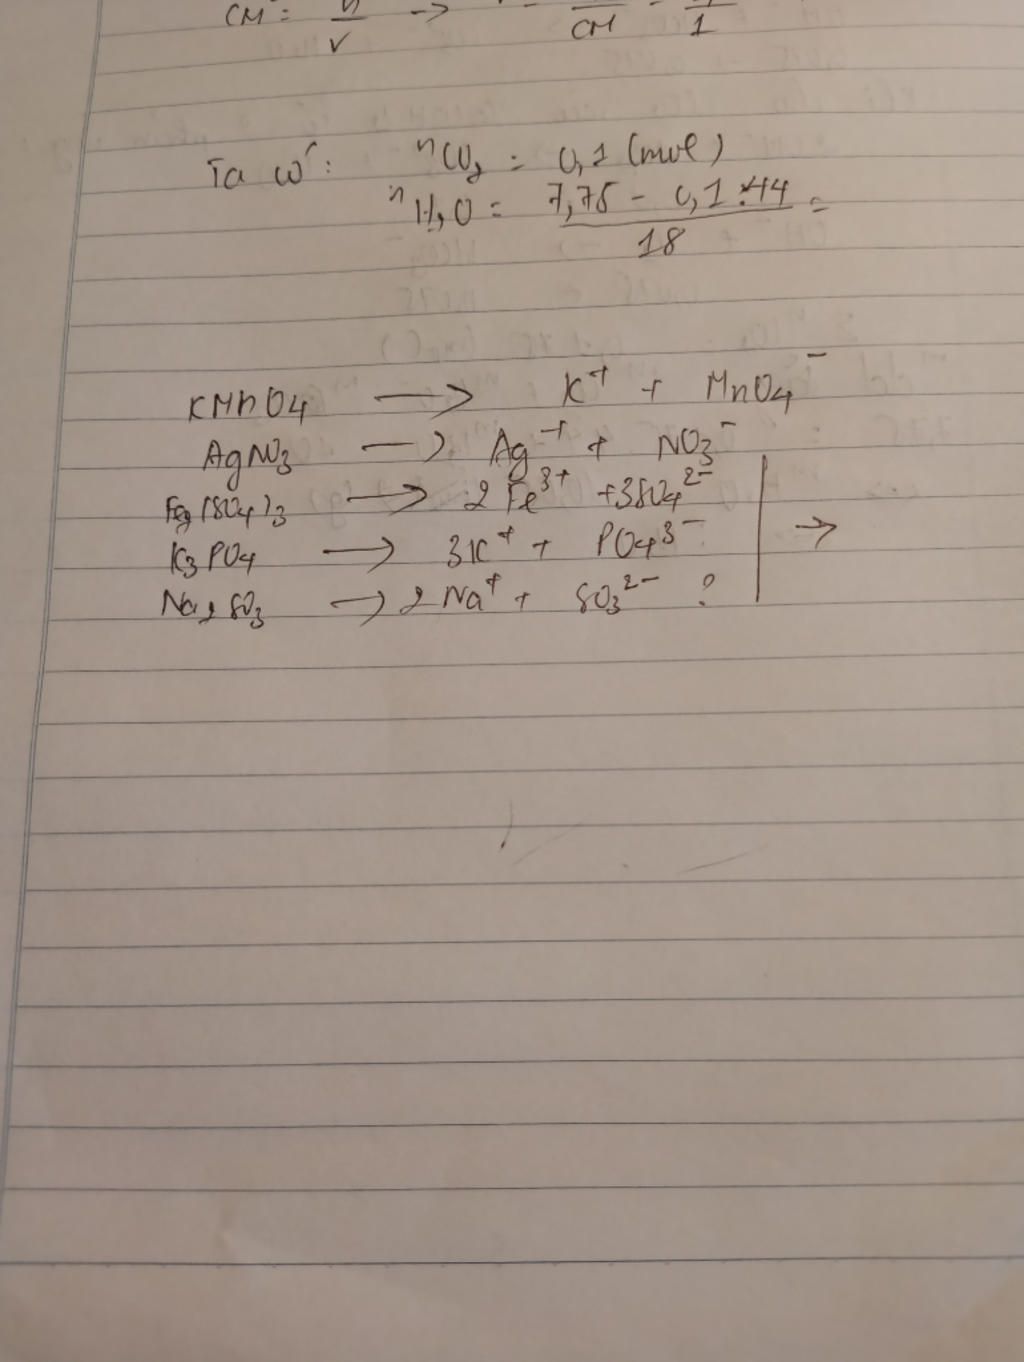 CM = n/V →
CM 1
Ta có: nCO2 = 0,1 (mol)
nH2O = 7,75 - 0,1.44 / 18 =
KMnO4 → K+ + MnO4-
AgNO3 → Ag+ + NO3-
Fe2(SO4)3 → 2Fe3+ + 3SO42-
K3PO4 → 3K+ + PO43-
Na2SO3 → 2Na+ + SO32- ?
→